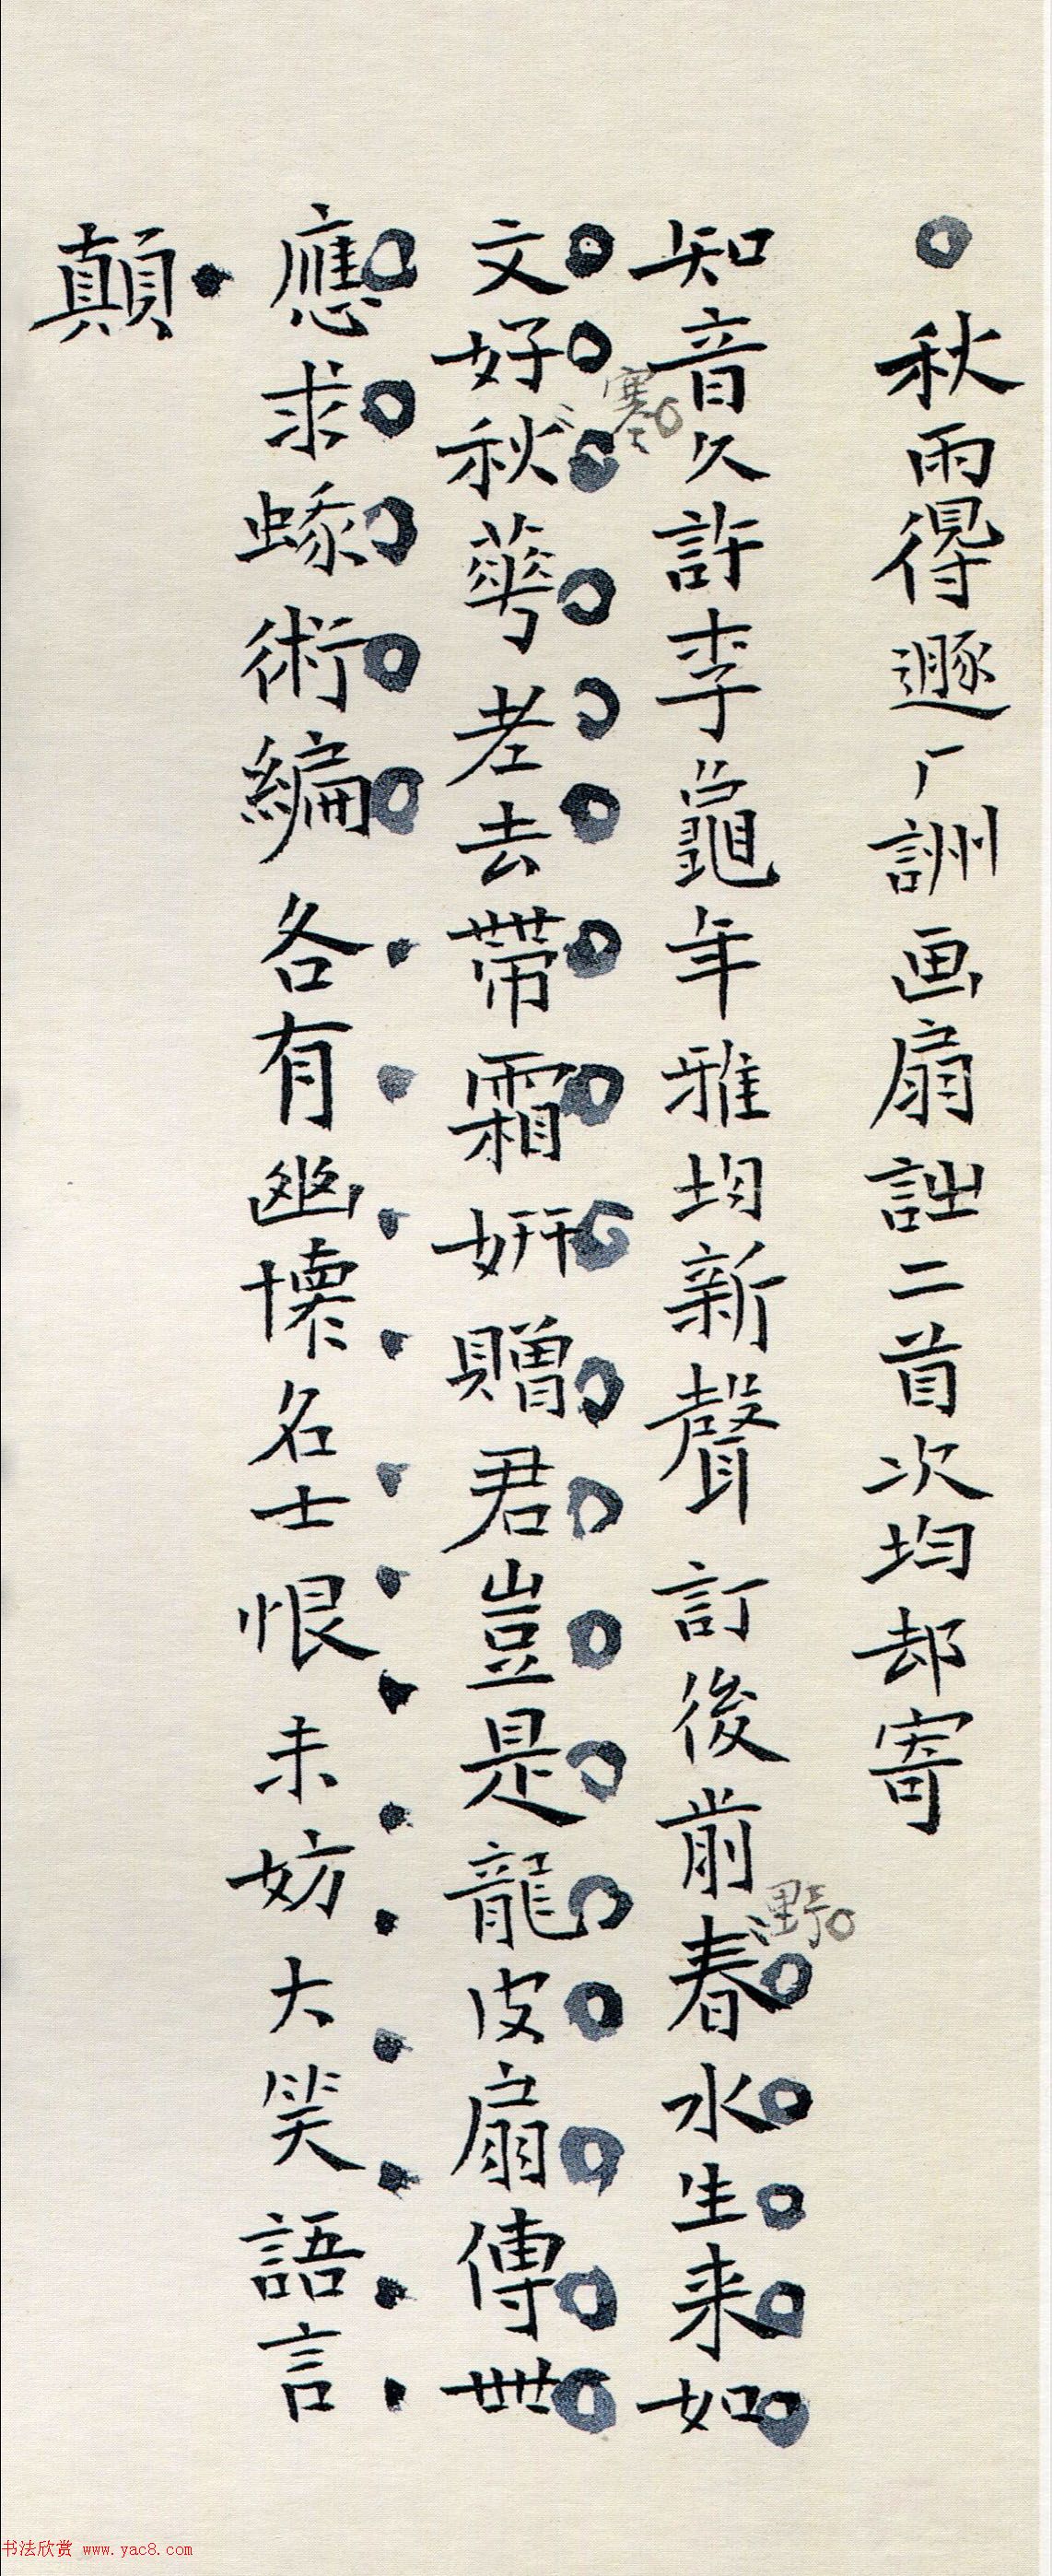 秋雨得遯厂詶画扇詘二首次均却寄
知音久許李龜年雅均新聲訂後前春水生来如
野
文好秋蕚老去帶霜妍贈君豈是龍皮扇傳世
寒
應求蝝術編各有幽懐名士恨未妨大笑語言
顛
书法欣赏 www.yac8.com